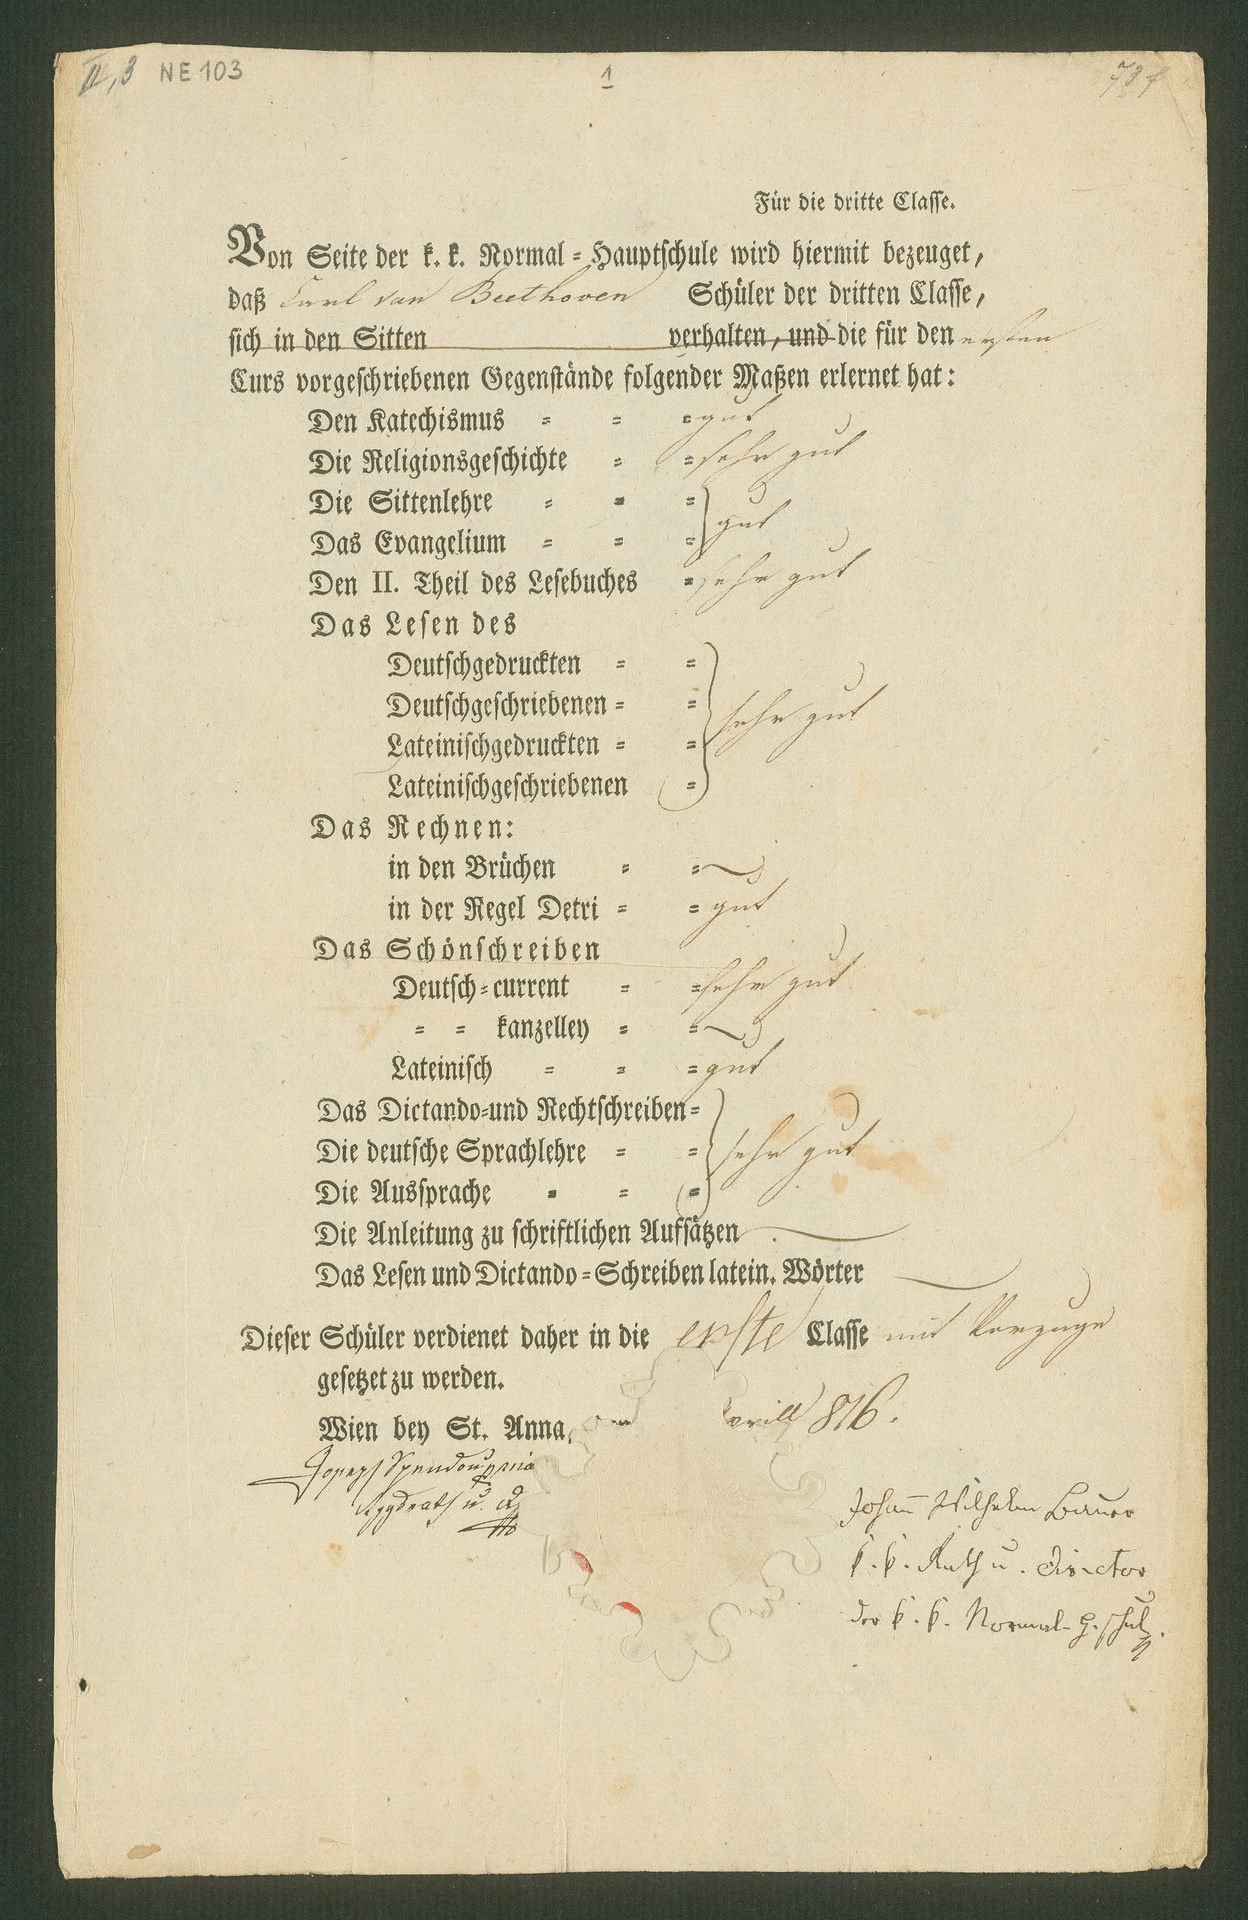 II,3 NE 103
1
Für die dritte Classe.
Von Seite der k. k. Normal=Hauptschule wird hiermit bezeuget,
daß Carl van Beethoven Schüler der dritten Classe,
sich in den Sitten verhalten, und die für den ersten
Curs vorgeschriebenen Gegenstände folgender Maßen erlernet hat:
Den Katechismus = = = gut
Die Religionsgeschichte = = sehr gut
Die Sittenlehre = = =
gut
Das Evangelium = = =
Den II. Theil des Lesebuches = sehr gut
Das Lesen des
Deutschgedruckten = =
Deutschgeschriebenen = =
sehr gut
Lateinischgedruckten = =
Lateinischgeschriebenen =
Das Rechnen:
in den Brüchen = =
in der Regel Detri = = gut
Das Schönschreiben
Deutsch=current = = sehr gut
= = kanzelley = =
Lateinisch = = = gut
Das Dictando=und Rechtschreiben=
Die deutsche Sprachlehre = = sehr gut
Die Aussprache = = =
Die Anleitung zu schriftlichen Aufsätzen
Das Lesen und Dictando=Schreiben latein. Wörter
Dieser Schüler verdienet daher in die erste Classe mit Vorzuge
gesetzet zu werden.
Wien bey St. Anna, den prill 816.
Joseph Spendou
Johann Wilhelm Bauer
k. k. Rath u. Director
der k. k. Normal-H. schule